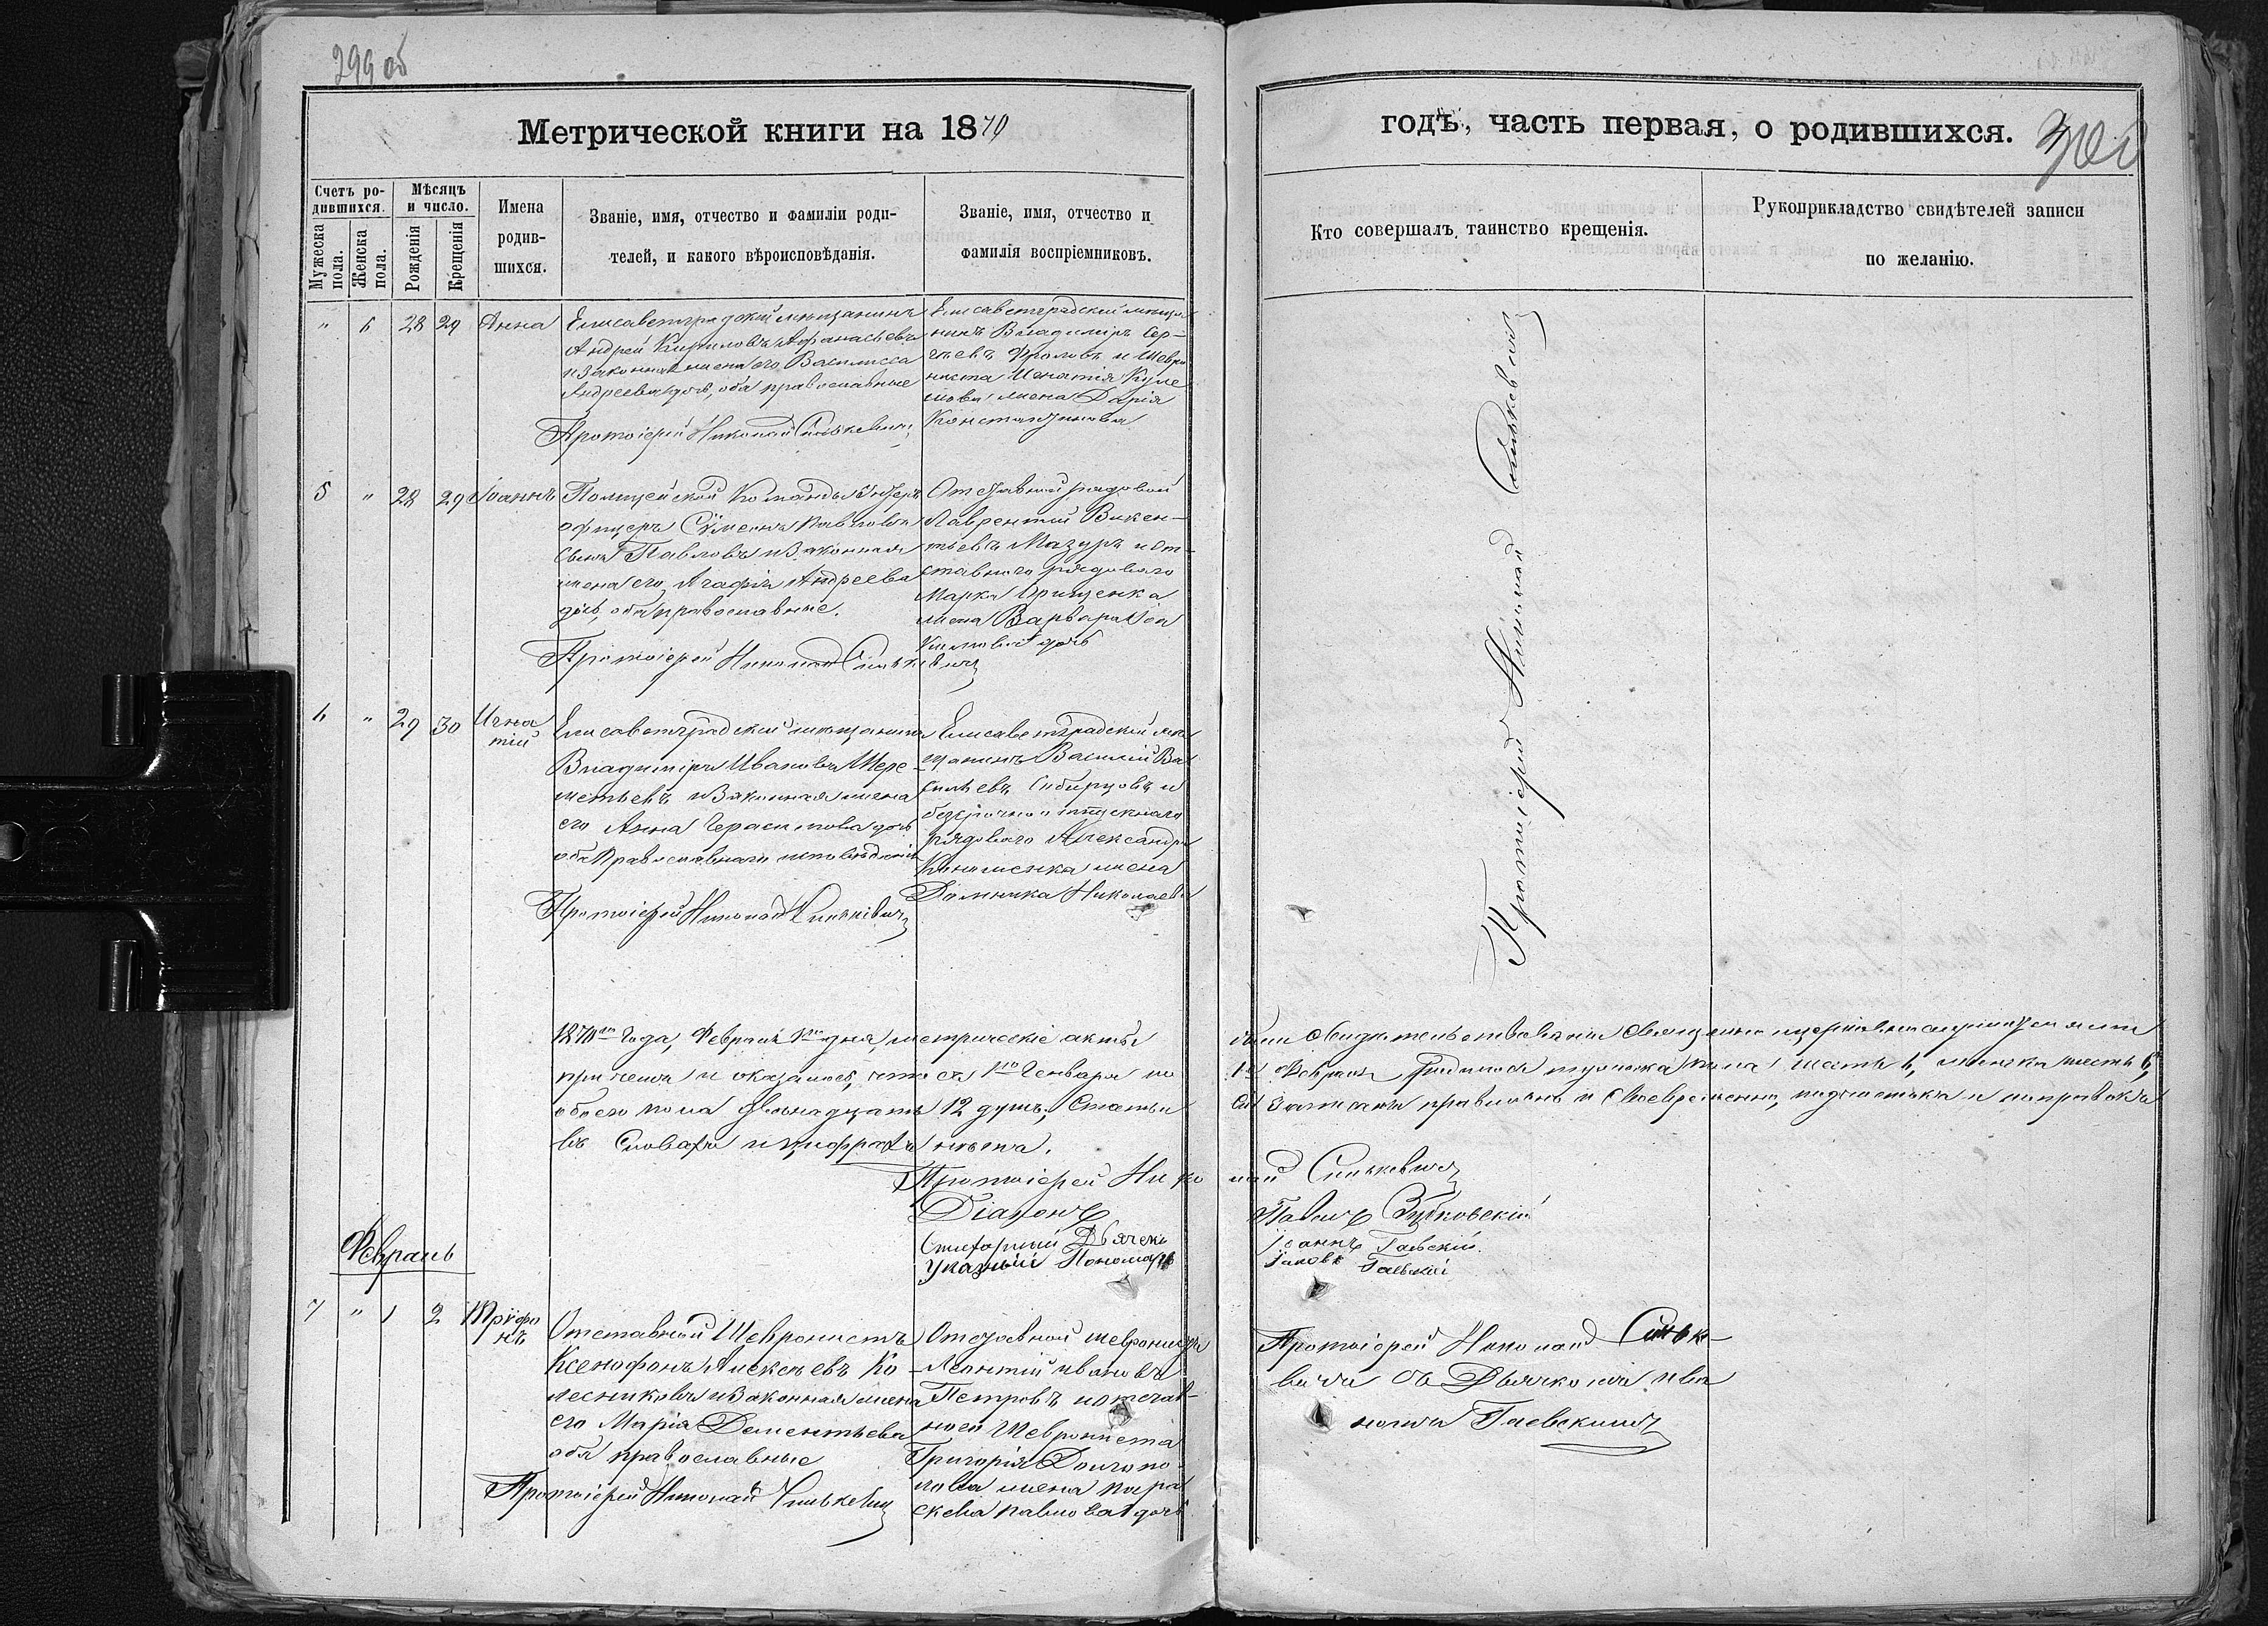 299 об
Метрической книги на 1870
годъ, часть первая, о родившихся.
300
Счетъ ро-
дившихся.
Мужеска
пола.
Женска
пола.
Мѣсяцъ
и число.
Рожденія
Крещенія
Имена
родив-
шихся.
Званіе, имя, отчество и фамиліи роди-
телей, и какого вѣроисповѣданія.
Званіе, имя, отчество и
фамилія воспріемниковъ.
Кто совершалъ таинство крещенія.
Рукоприкладство свидѣтелей записи
по желанію.
" 6 28 29 Анна
Елисаветградскій мѣщанинъ
Андрей Кириловъ Афанасьевъ
и законная жена его Василисса
Андреева дочь, оба православные
Протоіерей Николай Синькевичъ
Елисаветградскій мѣща-
нинъ Владиміръ Сер-
гѣевъ Фроловъ и Шевро-
ниста Игнатія Куле
шова жена Дарія
Константинова
5 " 28 29 Іоаннъ
Полицейской Команды Унтеръ
офицеръ Сѵмеонъ Павловъ
сынъ Павловъ и законная
жена его Агафія Андреева
дочь, оба православные.
Протоіерей Николай Синькевичъ
Отставной рядовой
Лаврентій Викен-
тьевъ Мазуръ и от-
ставного рядоваго
Марка Грищенка
жена Варвара
дочь
6 " 29 30 Игна
тій
Елисаветградскій мѣщанинъ
Владиміръ Ивановъ Шере-
метьевъ и законная жена
его Анна Герасимова дочь
оба Православнаго исповѣданія
Протоіерей Николай Синькевичъ
Елисаветградскій мѣ
щанинъ Василій Ва
сильевъ Сибирцовъ и
безсрочно отпускнаго
рядоваго Александра
жена
Домника Николаева
Протоіерей Николай Синькевичъ
1870го Года, Февраля 1го дня, метрическіе акты
были свидѣтельствованы священно церковно служителями
при чемъ и оказалось, что съ 1го Генваря по
1е Февраля родилось мужеска пола шесть 6, женска шесть 6,
обоего пола двѣнадцать 12 душъ; Статьи
сіи записаны правильно и своевременно, подчистокъ и поправокъ
въ Словахъ и цифрахъ нѣтъ.
Протоіерей Николай Синькевичъ
Діаконъ Павелъ
Дьячекъ Іоаннъ Гаевскій.
Указный Пономарь Іаковъ Гаевскій
Февраль
7 " 1 2 Трѵфо
нъ
Отставной Шевронистъ
Ксенофонъ Алексѣевъ Ко-
лесниковъ и законная жена
его Марія Дементьева
оба православные
Протоіерей Николай Синькевичъ
Отставной шевронистъ
Леонтій Ивановъ
Петровъ и отстав-
ной Шеврониста
Григорія Долгопо-
лова жена Пара
скева Павлова дочь
Протоіерей Николай Синьке-
вичъ съ Дьячкомъ Ива
номъ Гаевскимъ